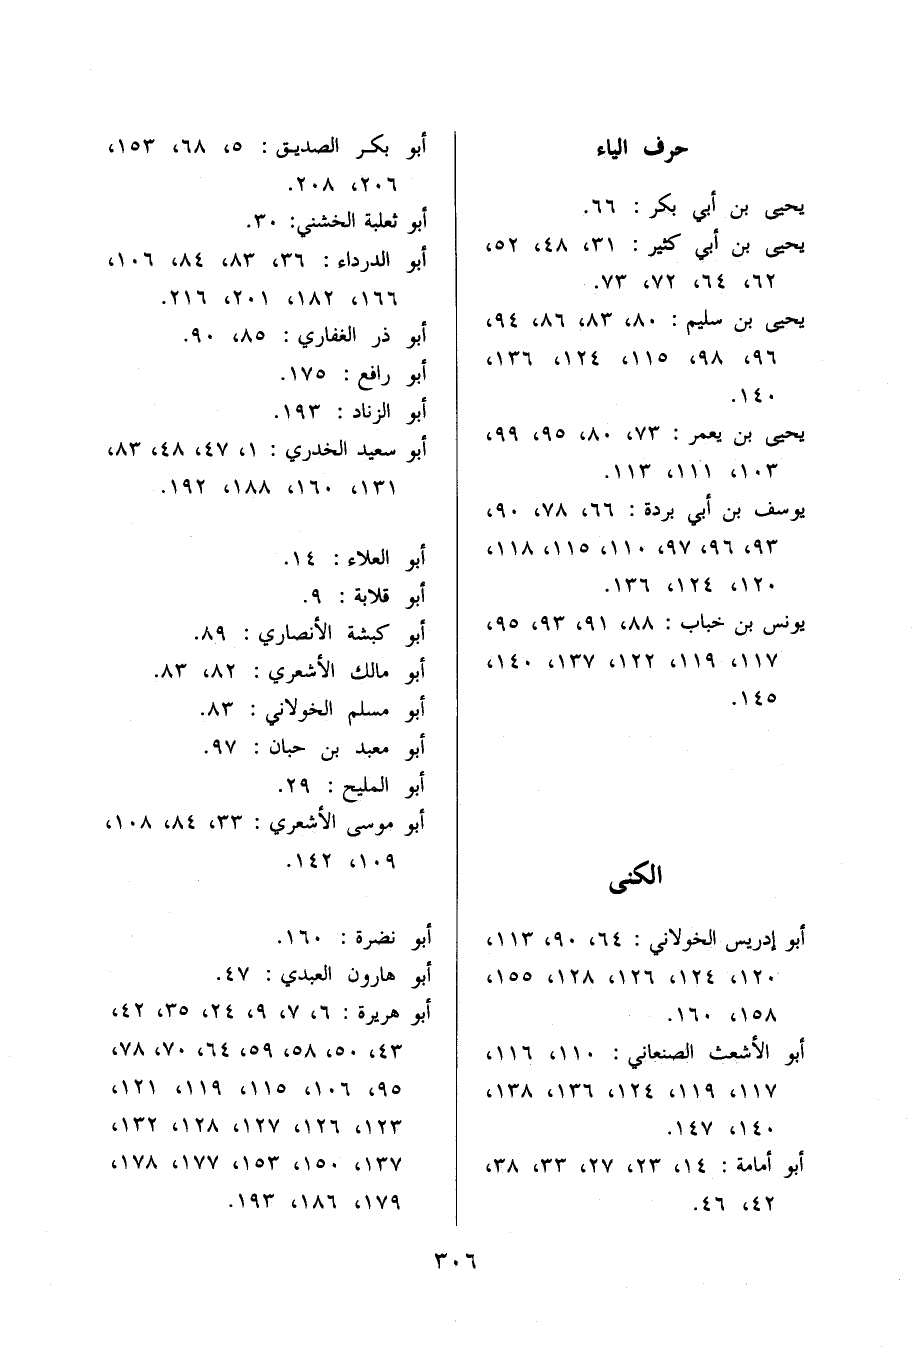 حرف الياء
يحيى بن أبي بكر : ٦٦.
يحيى بن أبي كثير : ٣١، ٤٨، ٥٢،
٦٢، ٦٤، ٧٢، ٧٣.
يحيى بن سليم : ٨٠، ٨٣، ٨٦، ٩٤،
٩٦، ٩٨، ١١٥، ١٢٤، ١٣٦،
١٤٠.
يحيى بن يعمر : ٧٣، ٨٠، ٩٥، ٩٩،
١٠٣، ١١١، ١١٣.
يوسف بن أبي بردة : ٦٦، ٧٨، ٩٠،
٩٣، ٩٦، ٩٧، ١١٠، ١١٥، ١١٨،
١٢٠، ١٢٤، ١٣٦.
يونس بن خباب : ٨٨، ٩١، ٩٣، ٩٥،
١١٧، ١١٩، ١٢٢، ١٣٧، ١٤٠،
١٤٥.
الكنى
أبو إدريس الخولاني : ٦٤، ٩٠، ١١٣،
١٢٠، ١٢٤، ١٢٦، ١٢٨، ١٥٥،
١٥٨، ١٦٠.
أبو الأشعث الصنعاني : ١١٠، ١١٦،
١١٧، ١١٩، ١٢٤، ١٣٦، ١٣٨،
١٤٠، ١٤٧.
أبو أمامة : ١٤، ٢٣، ٢٧، ٣٣، ٣٨،
٤٢، ٤٦.
أبو بكر الصديق : ٥، ٦٨، ١٥٣،
٢٠٦، ٢٠٨.
أبو ثعلبة الخشني: ٣٠.
أبو الدرداء : ٣٦، ٨٣، ٨٤، ١٠٦،
١٦٦، ١٨٢، ٢٠١، ٢١٦.
أبو ذر الغفاري : ٨٥، ٩٠.
أبو رافع : ١٧٥.
أبو الزناد : ١٩٣.
أبو سعيد الخدري : ١، ٤٧، ٤٨، ٨٣،
١٣١، ١٦٠، ١٨٨، ١٩٢.
أبو العلاء : ١٤.
أبو قلابة : ٩.
أبو كبشة الأنصاري : ٨٩.
أبو مالك الأشعري : ٨٢، ٨٣.
أبو مسلم الخولاني : ٨٣.
أبو معبد بن حبان : ٩٧.
أبو المليح : ٢٩.
أبو موسى الأشعري : ٣٣، ٨٤، ١٠٨،
١٠٩، ١٤٢.
أبو نضرة : ١٦٠.
أبو هارون العبدي : ٤٧.
أبو هريرة : ٦، ٧، ٩، ٢٤، ٣٥، ٤٢،
٤٣، ٥٠، ٥٨، ٥٩، ٦٤، ٧٠، ٧٨،
٩٥، ١٠٦، ١١٥، ١١٩، ١٢١،
١٢٣، ١٢٦، ١٢٧، ١٢٨، ١٣٢،
١٣٧، ١٥٠، ١٥٣، ١٧٧، ١٧٨،
١٧٩، ١٨٦، ١٩٣.
٣٠٦